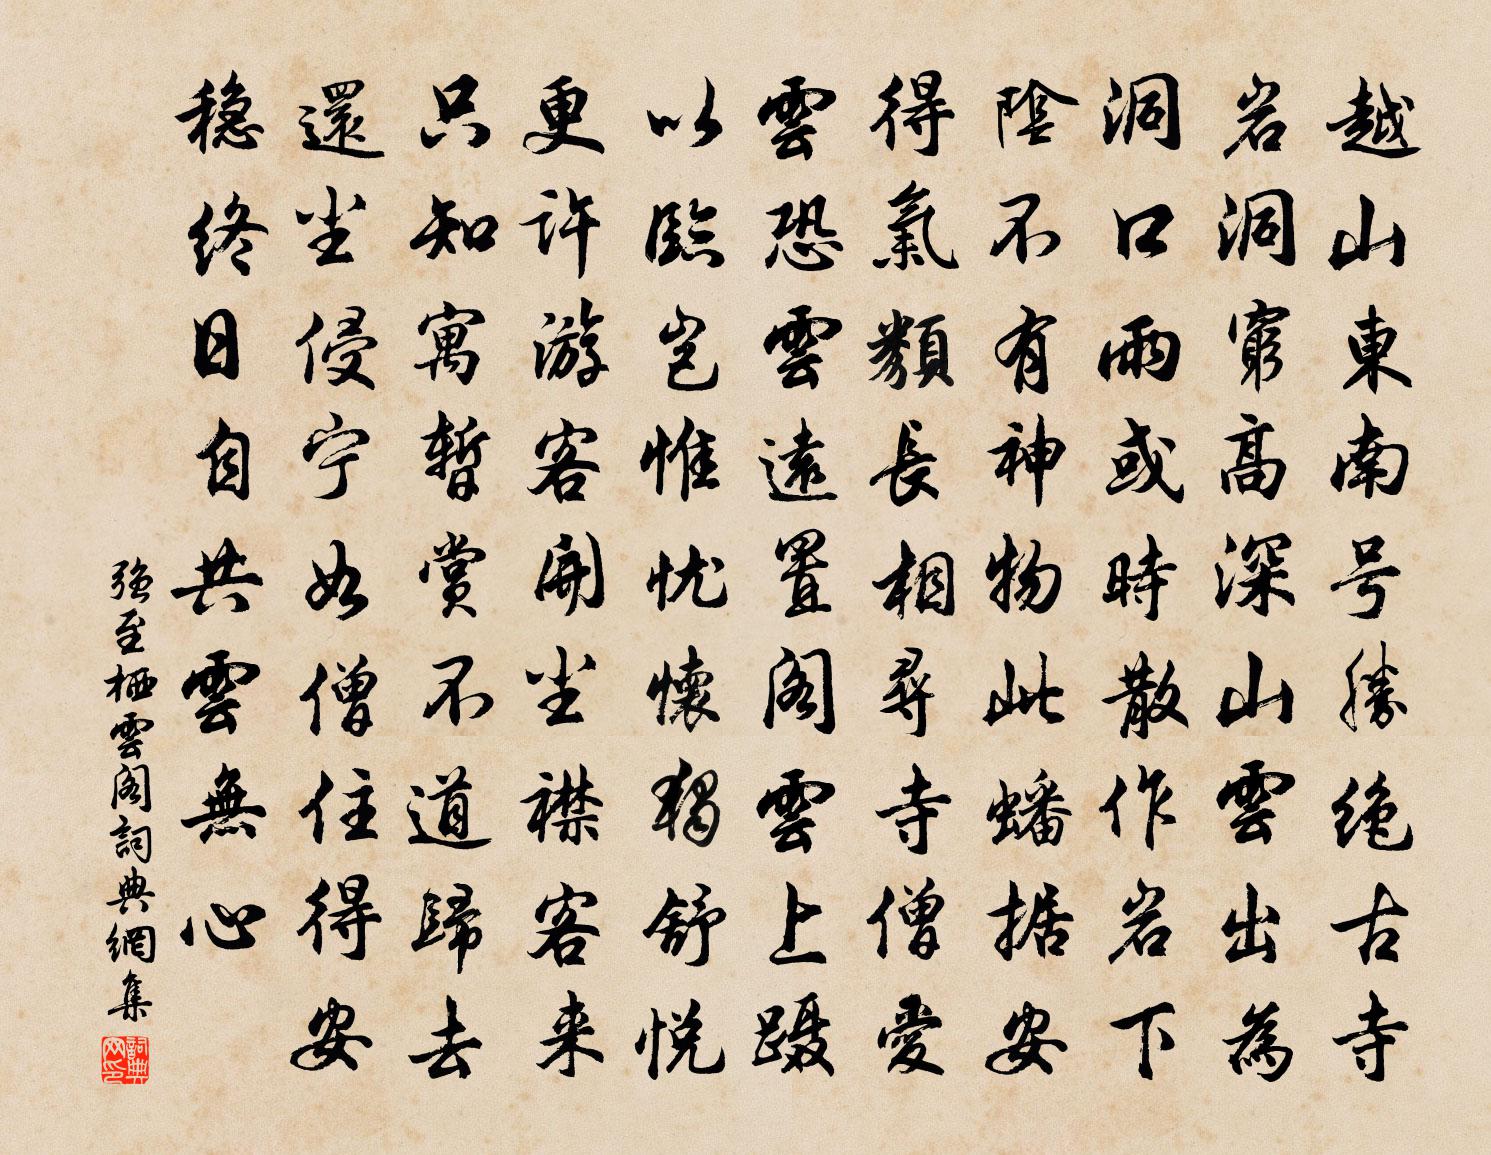 越山東南号勝绝古寺
岩洞窮高深山雲出為
洞口雨或時散作岩下
陰不有神物此蟠据安
得氣類長相尋寺僧愛
雲恐雲遠置閣雲上躡
以臨豈惟忧懷獨舒悅
更許游客開尘襟客来
只知寓暫賞不道歸去
還尘侵宁如僧住得安
稳終日自共雲無心
強至栖雲閣詞典網集
詞典网印